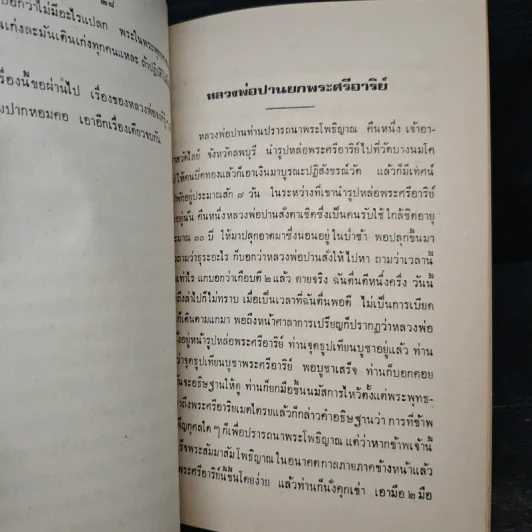 ๒๘
บอกว่าไม่มีอะไรแปลก พระในพระพุทธ
นเก่งละมันเดินเก่งทุกคนแหละ ถ้าปฏิบัติ
รื่องนี้ขอผ่านไป เรื่องของหลวงพ่อ
มปากหอมคอ เอาอีกเรื่องเดียวจบกัน
หลวงพ่อปานยกพระศรีอาริย์
หลวงพ่อปานท่านปรารถนาพระโพธิญาณ คืนหนึ่ง เจ้าอา-
วาสวัดไลย์ จังหวัดลพบุรี นำรูปหล่อพระศรีอาริย์ไปที่วัดบางนมโค
ให้คนปิดทองแล้วก็เอาเงินมาบูรณะปฏิสังขรณ์วัด แล้วก็มีเทศน์
พักอยู่ประมาณสัก ๗ วัน ในระหว่างที่เขานำรูปหล่อพระศรีอาริย์
อยู่นั้น คืนหนึ่งหลวงพ่อปานสั่งตาเชิดซึ่งเป็นคนรับใช้ใกล้ชิดอายุ
ประมาณ ๓๐ ปี ให้มาปลุกอาตมาซึ่งนอนอยู่ในป่าช้า พอปลุกขึ้นมา
ถามว่าธุระอะไร ก็บอกว่าหลวงพ่อปานสั่งให้ไปหา ถามว่าเวลานี้
เท่าไร แกบอกว่าเกือบตี ๒ แล้ว ตายจริง ฉันตื่นตีหนึ่งครึ่ง วันนี้
ถึงล้าไปก็ไม่ทราบ เมื่อเป็นเวลาที่ฉันตื่นพอดี ไม่เป็นการเบียด
ก็เดินตามแกมา พอถึงหน้าศาลาการเปรียญก็ปรากฏว่าหลวงพ่อ
นั่งอยู่หน้ารูปหล่อพระศรีอาริย์ ท่านจุดธูปเทียนบูชาอยู่แล้ว ท่าน
ว่าจุดธูปเทียนบูชาพระศรีอาริย์ พอบูชาเสร็จ ท่านก็บอกคอย
ฉันจะอธิษฐานให้ดู ท่านก็ยกมือขึ้นนมัสการไหว้ตั้งแต่พระพุทธ-
มาถึงพระศรีอาริยเมตไตรยแล้วก็กล่าวคำอธิษฐานว่า การที่ข้าพ
เพ็ญกุศลใดๆ ก็เพื่อปรารถนาพระโพธิญาณ แต่ว่าหากข้าพเจ้านี้
ร็จพระสัมมาสัมโพธิญาณในอนาคตกาลภายภาคข้างหน้าแล้ว
พระศรีอาริย์นี้ขึ้นโดยง่าย แล้วท่านก็นั่งคุกเข่า เอามือ ๒ มือ